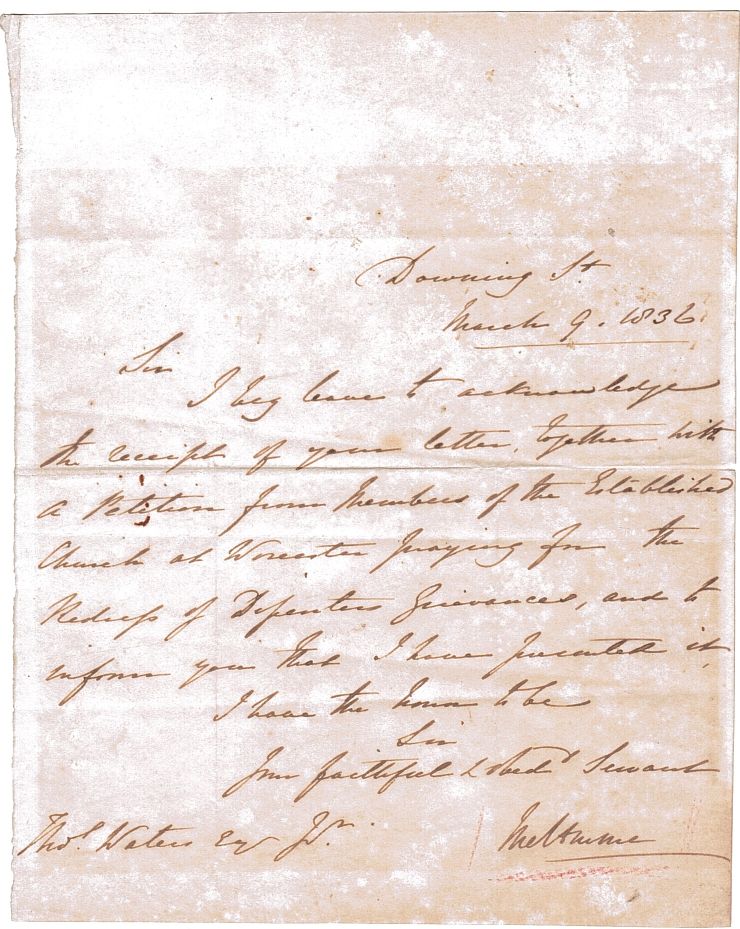 Downing St
March 9. 1836.
Sir
I beg leave to acknowledge
the receipt of your letter, together with
a Petition from Members of the Established
Church at Worcester praying for the
Redress of Dissenters Grievances, and to
inform you that I have presented it,
I have the honor to be
Sir
Your faithful & obedt Servant
Thos. Waters Esq Jr.
Melbourne